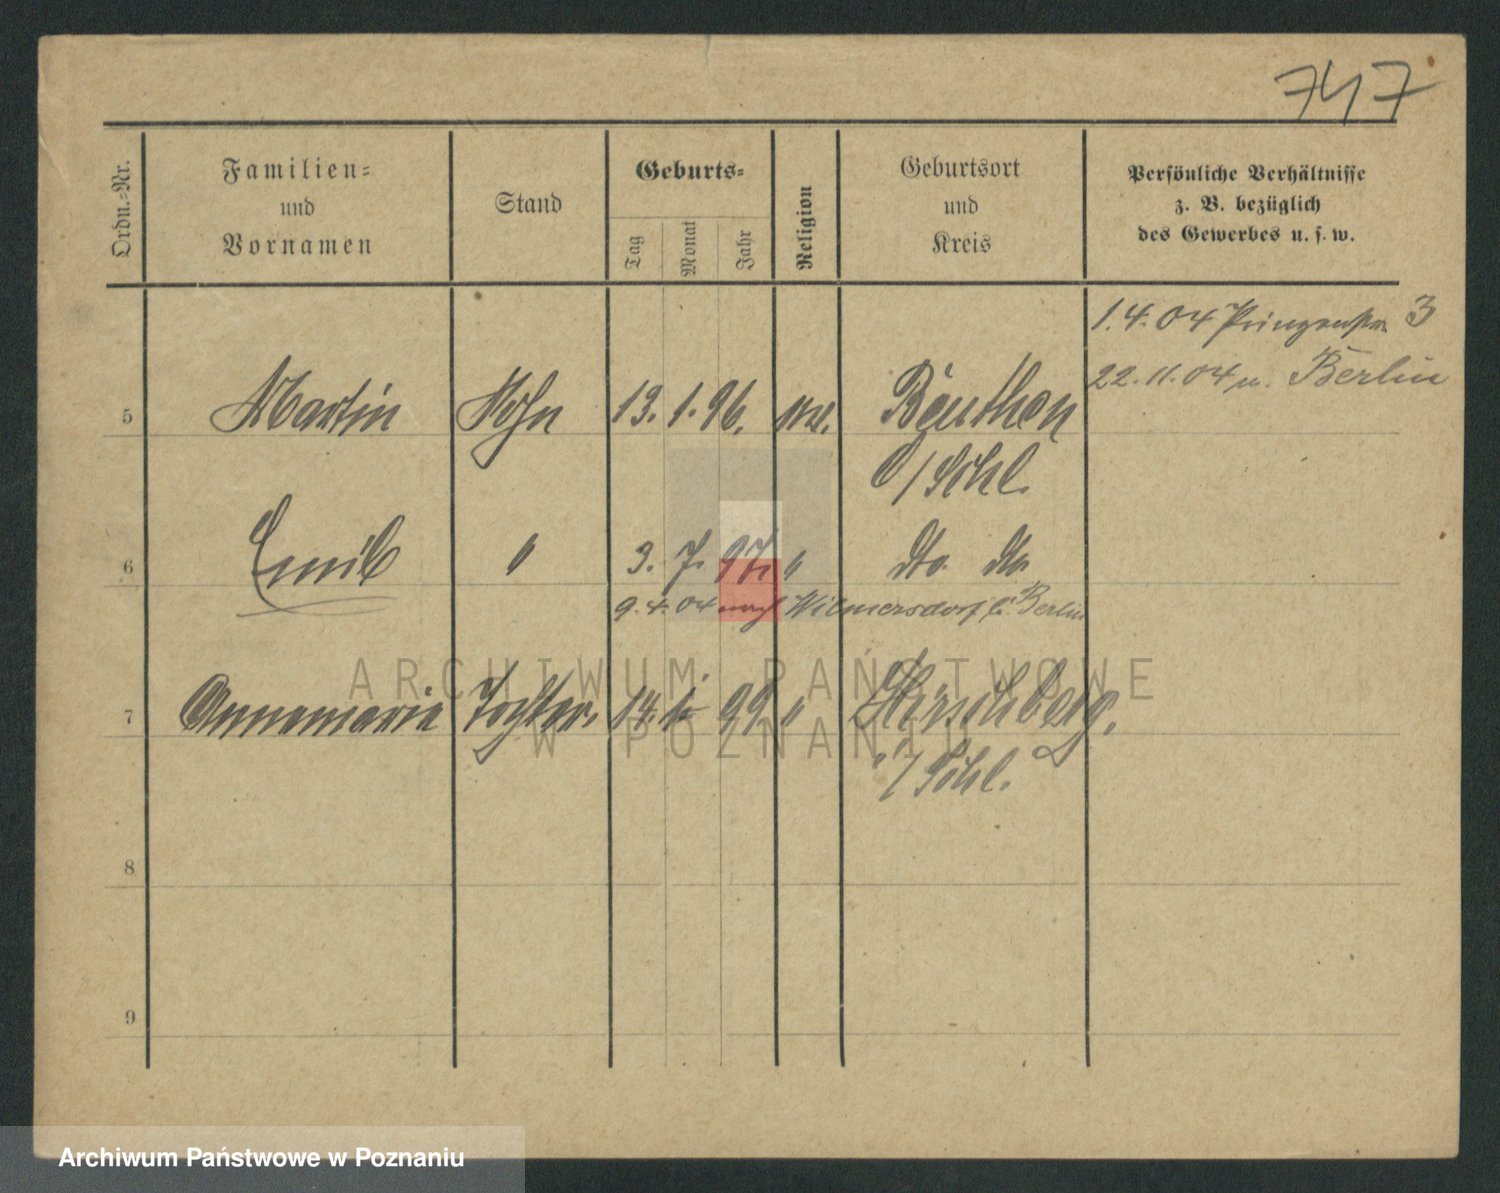 747
Ordn.-Nr.
Familien-
und
Vornamen
Stand
Geburts-
Tag
Monat
Jahr
Religion
Geburtsort
und
Kreis
Persönliche Verhältnisse
z. B. bezüglich
des Gewerbes u. s. w.
1.4.04 Prinzenstr. 3
22.11.04 n. Berlin
5 Martin Sohn 13. 1. 96. Beuthen
O/Schl.
6 Emil " 3. 7. 97. " dto. dto.
9.4.04 nach Wilmersdorf b. Berlin
7 Annemarie Tochter 14. 1. 99 " Hirschberg.
i/Schl.
8
9
ARCHIWUM PAŃSTWOWE
W POZNANIU
Archiwum Państwowe w Poznaniu